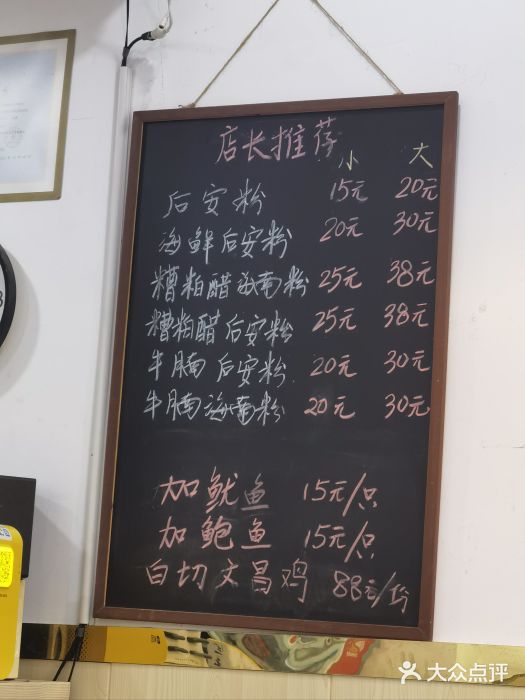 店长推荐
小 大
后安粉 15元 20元
海鲜后安粉 20元 30元
糟粕醋海南粉 25元 38元
糟粕醋后安粉 25元 38元
牛腩后安粉 20元 30元
牛腩海南粉 20元 30元
加鱿鱼 15元/只
加鲍鱼 15元/只
白切文昌鸡 88元/份
大众点评